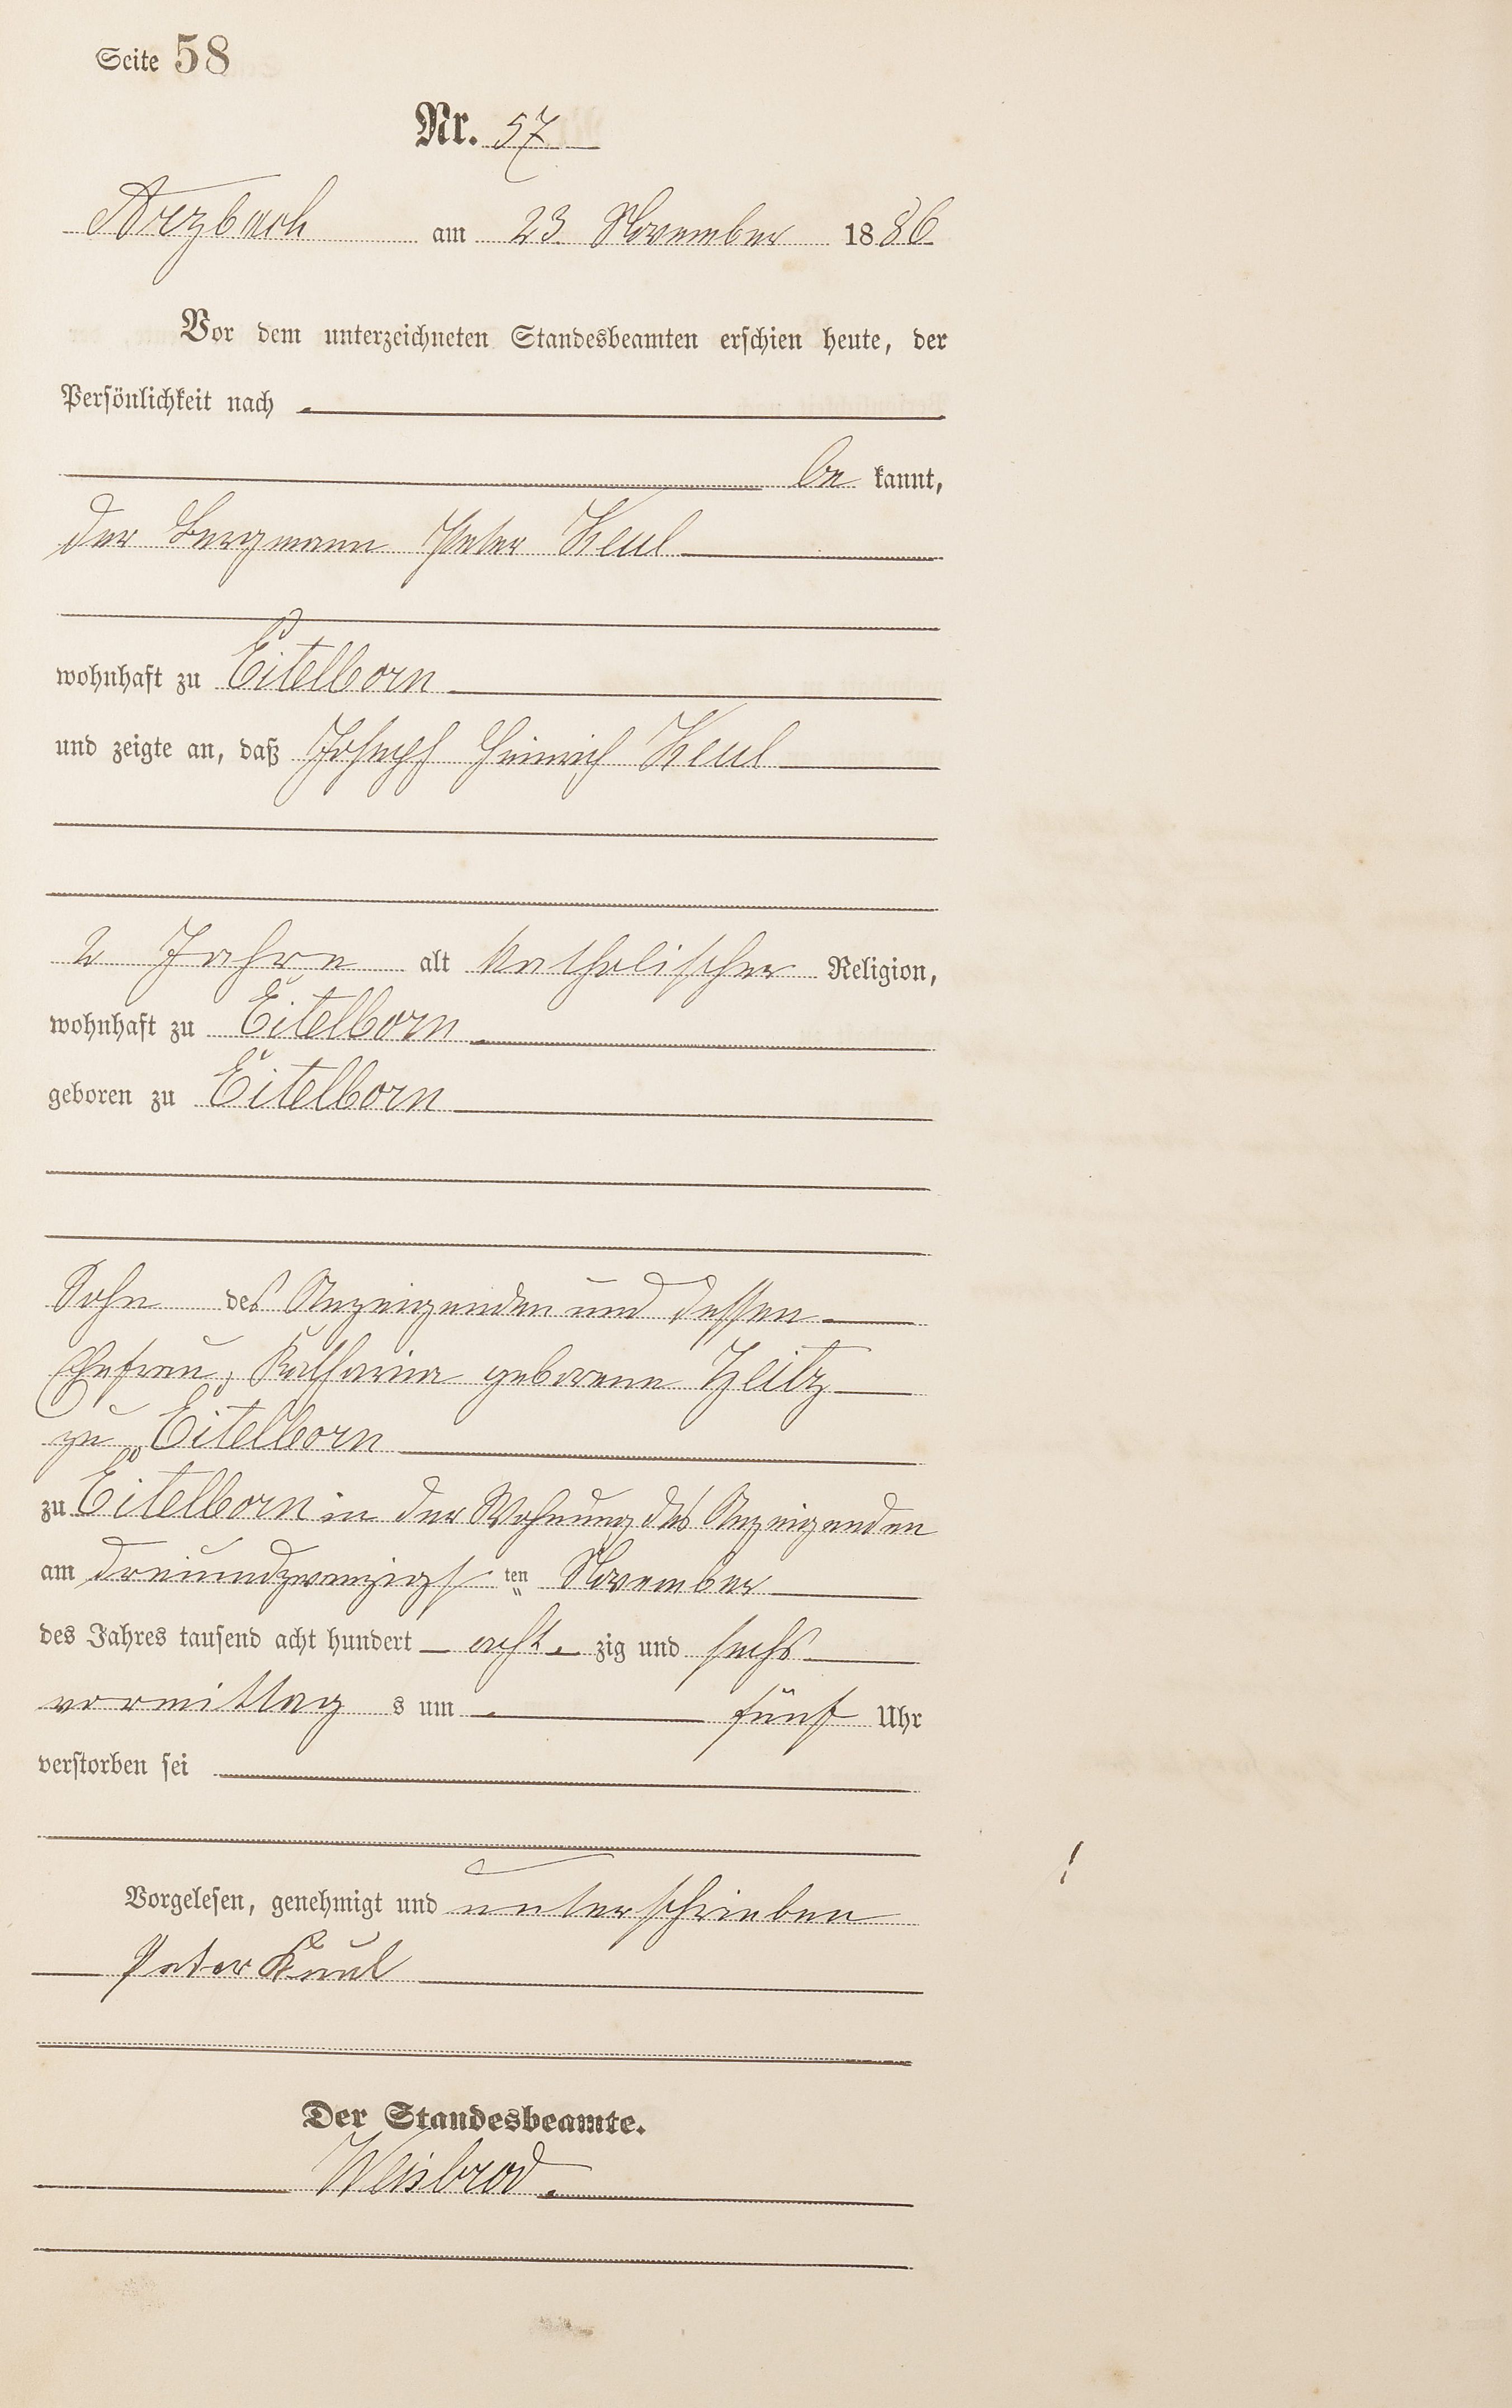 Seite 58
Nr. 57
Arzbach am 23. November 1886
Vor dem unterzeichneten Standesbeamten erschien heute, der
Persönlichkeit nach
be kannt,
der Bergmann Peter Keul
wohnhaft zu Eitelborn
und zeigte an, daß Joseph Heinrich Keul
2 Jahre alt katholischer Religion,
wohnhaft zu Eitelborn
geboren zu Eitelborn
Sohn des Anzeigenden und dessen
Ehefrau, Katharina geborene Heitz
zu Eitelborn
zu Eitelborn in der Wohnung des Anzeigenden
am dreiundzwanzigsten November
des Jahres tausend acht hundert acht zig und sechs
vormittag s um fünf Uhr
verstorben sei
Vorgelesen, genehmigt und unterschrieben
Peter Keul
Der Standesbeamte.
Weisbrod.